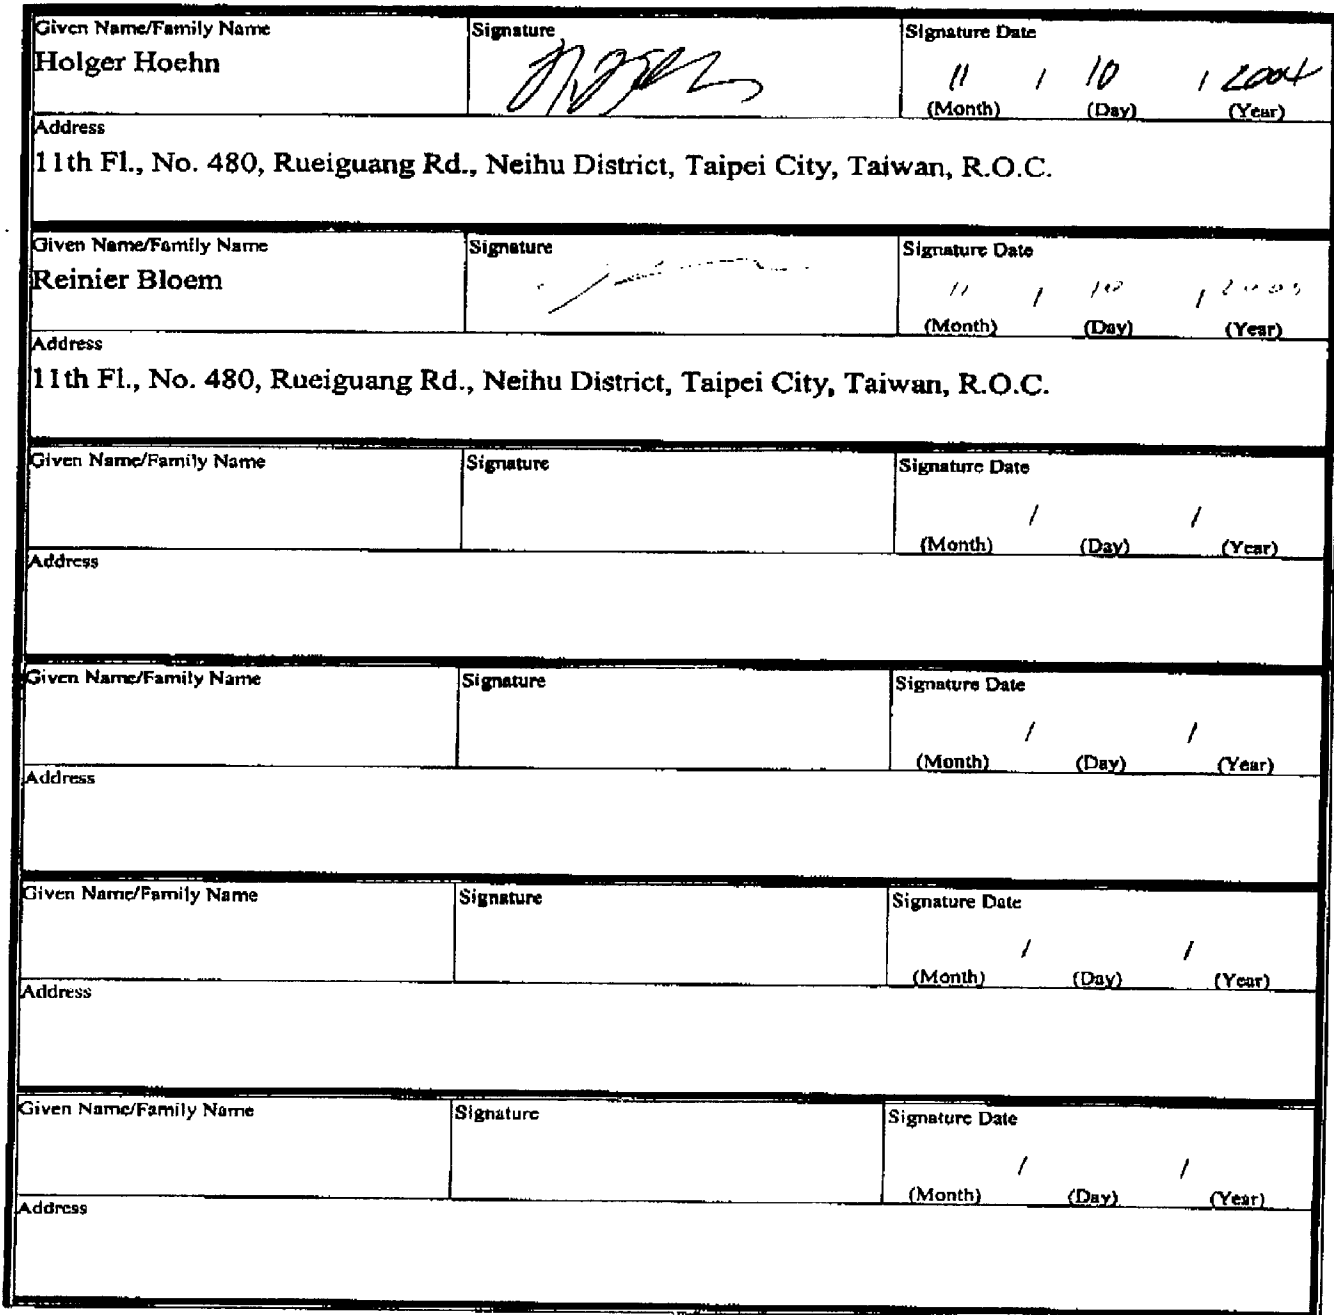 Given Name/Family Name Signature Signature Date
Holger Hoehn
11 / 10 / 2004
(Month) (Day) (Year)
Address
11th Fl., No. 480, Rueiguang Rd., Neihu District, Taipei City, Taiwan, R.O.C.
Given Name/Family Name Signature Signature Date
Reinier Bloem
11 / 10 /
(Month) (Day) (Year)
Address
11th Fl., No. 480, Rueiguang Rd., Neihu District, Taipei City, Taiwan, R.O.C.
Given Name/Family Name Signature Signature Date
/ /
(Month) (Day) (Year)
Address
Given Name/Family Name Signature Signature Date
/ /
(Month) (Day) (Year)
Address
Given Name/Family Name Signature Signature Date
/ /
(Month) (Day) (Year)
Address
Given Name/Family Name Signature Signature Date
/ /
(Month) (Day) (Year)
Address